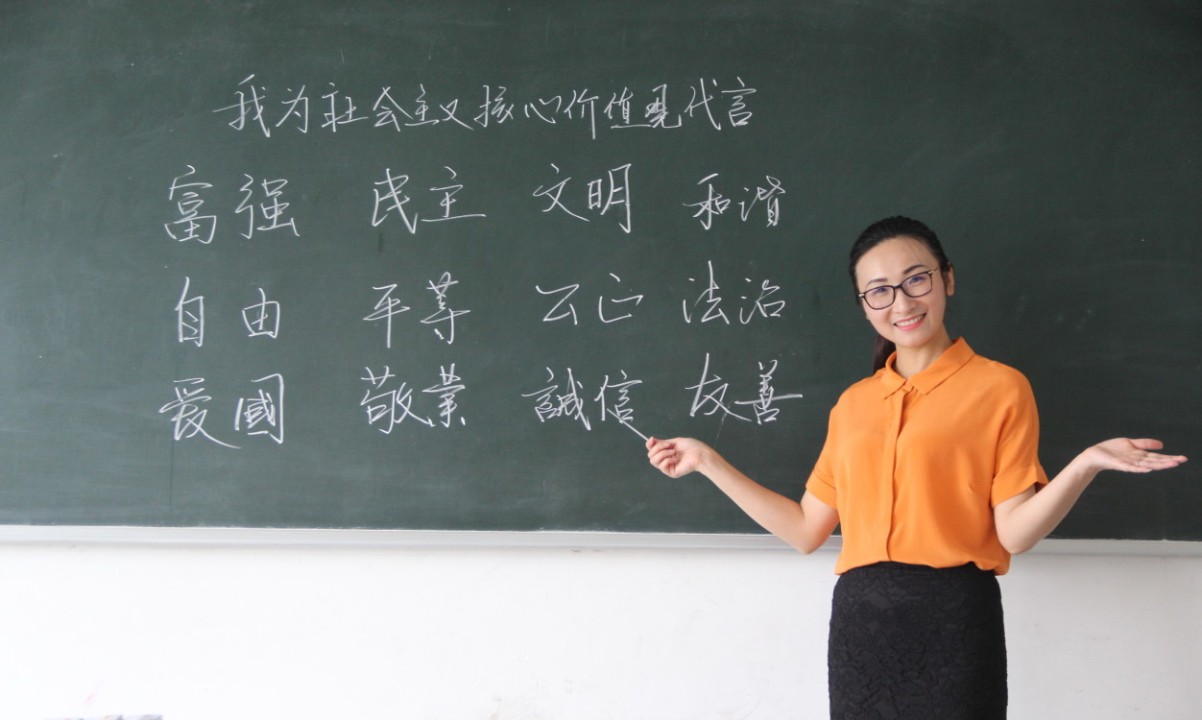 我为社会主义核心价值观代言
富强 民主 文明 和谐
自由 平等 公正 法治
爱國 敬業 誠信 友善